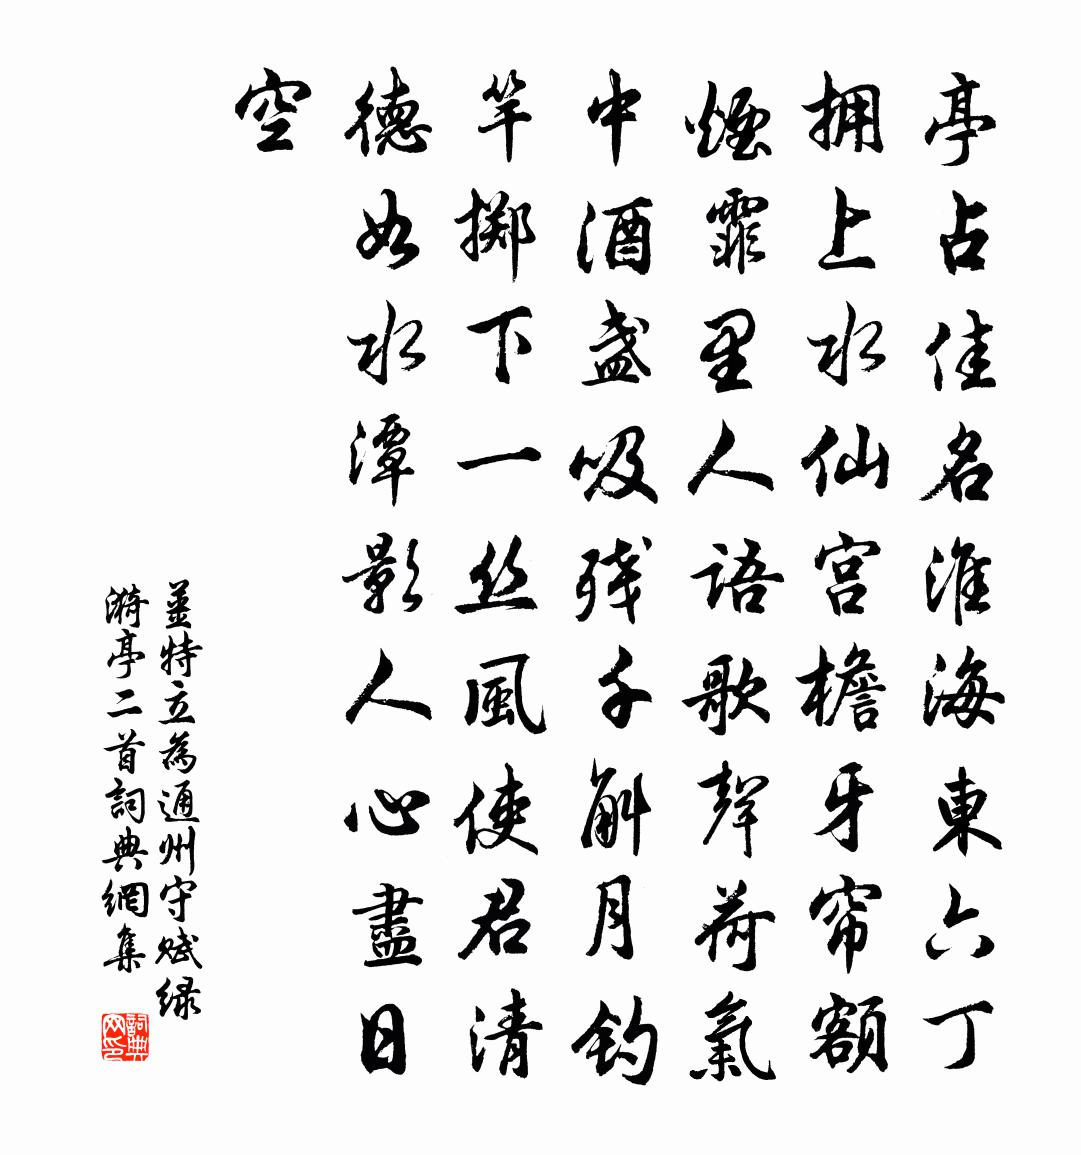 亭占佳名淮海東六丁
拥上水仙宫檐牙帘額
煙霏里人語歌聲荷氣
中酒盏吸残千斛月釣
竿掷下一丝風使君清
德如水潭影人心盡日
空
薑特立為通州守赋绿
漪亭二首詞典網集
詞典
网印